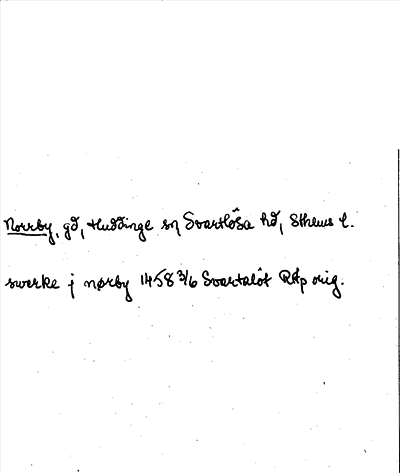 Norrby, gd, Huddinge sn Svartlösa hd, Sthlms l.
swerke j nørby 1458 3/6 Svartalöt RAp orig.